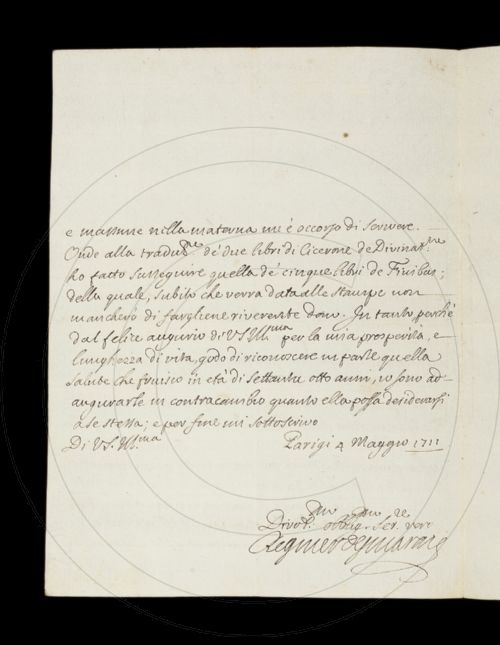 e massime nella materna mi è occorso di scrivere.
Onde alla traduz.ne de' due libri di Cicerone de Divinat.ne
ho fatto susseguire quella de' cinque libri de Finibus;
della quale, subito che verrà data alle stampe non
mancherò di fargliene riverente dono. In tanto perche
dal felice augurio di VS Ill.ma per la mia prosperità, e
lunghezza di vita, godo di riconoscere in parte quella
salute che fruisco in età di settanta otto anni, io sono ad
augurarle in contracambio quanto ella possa desiderarsi
a se stessa; e per fine mi sottoscrivo
Di VS. Ill.ma Parigi 4 Maggio 1711
Divot.mo obblig.mo Ser.re vero
Regnier Desmarais